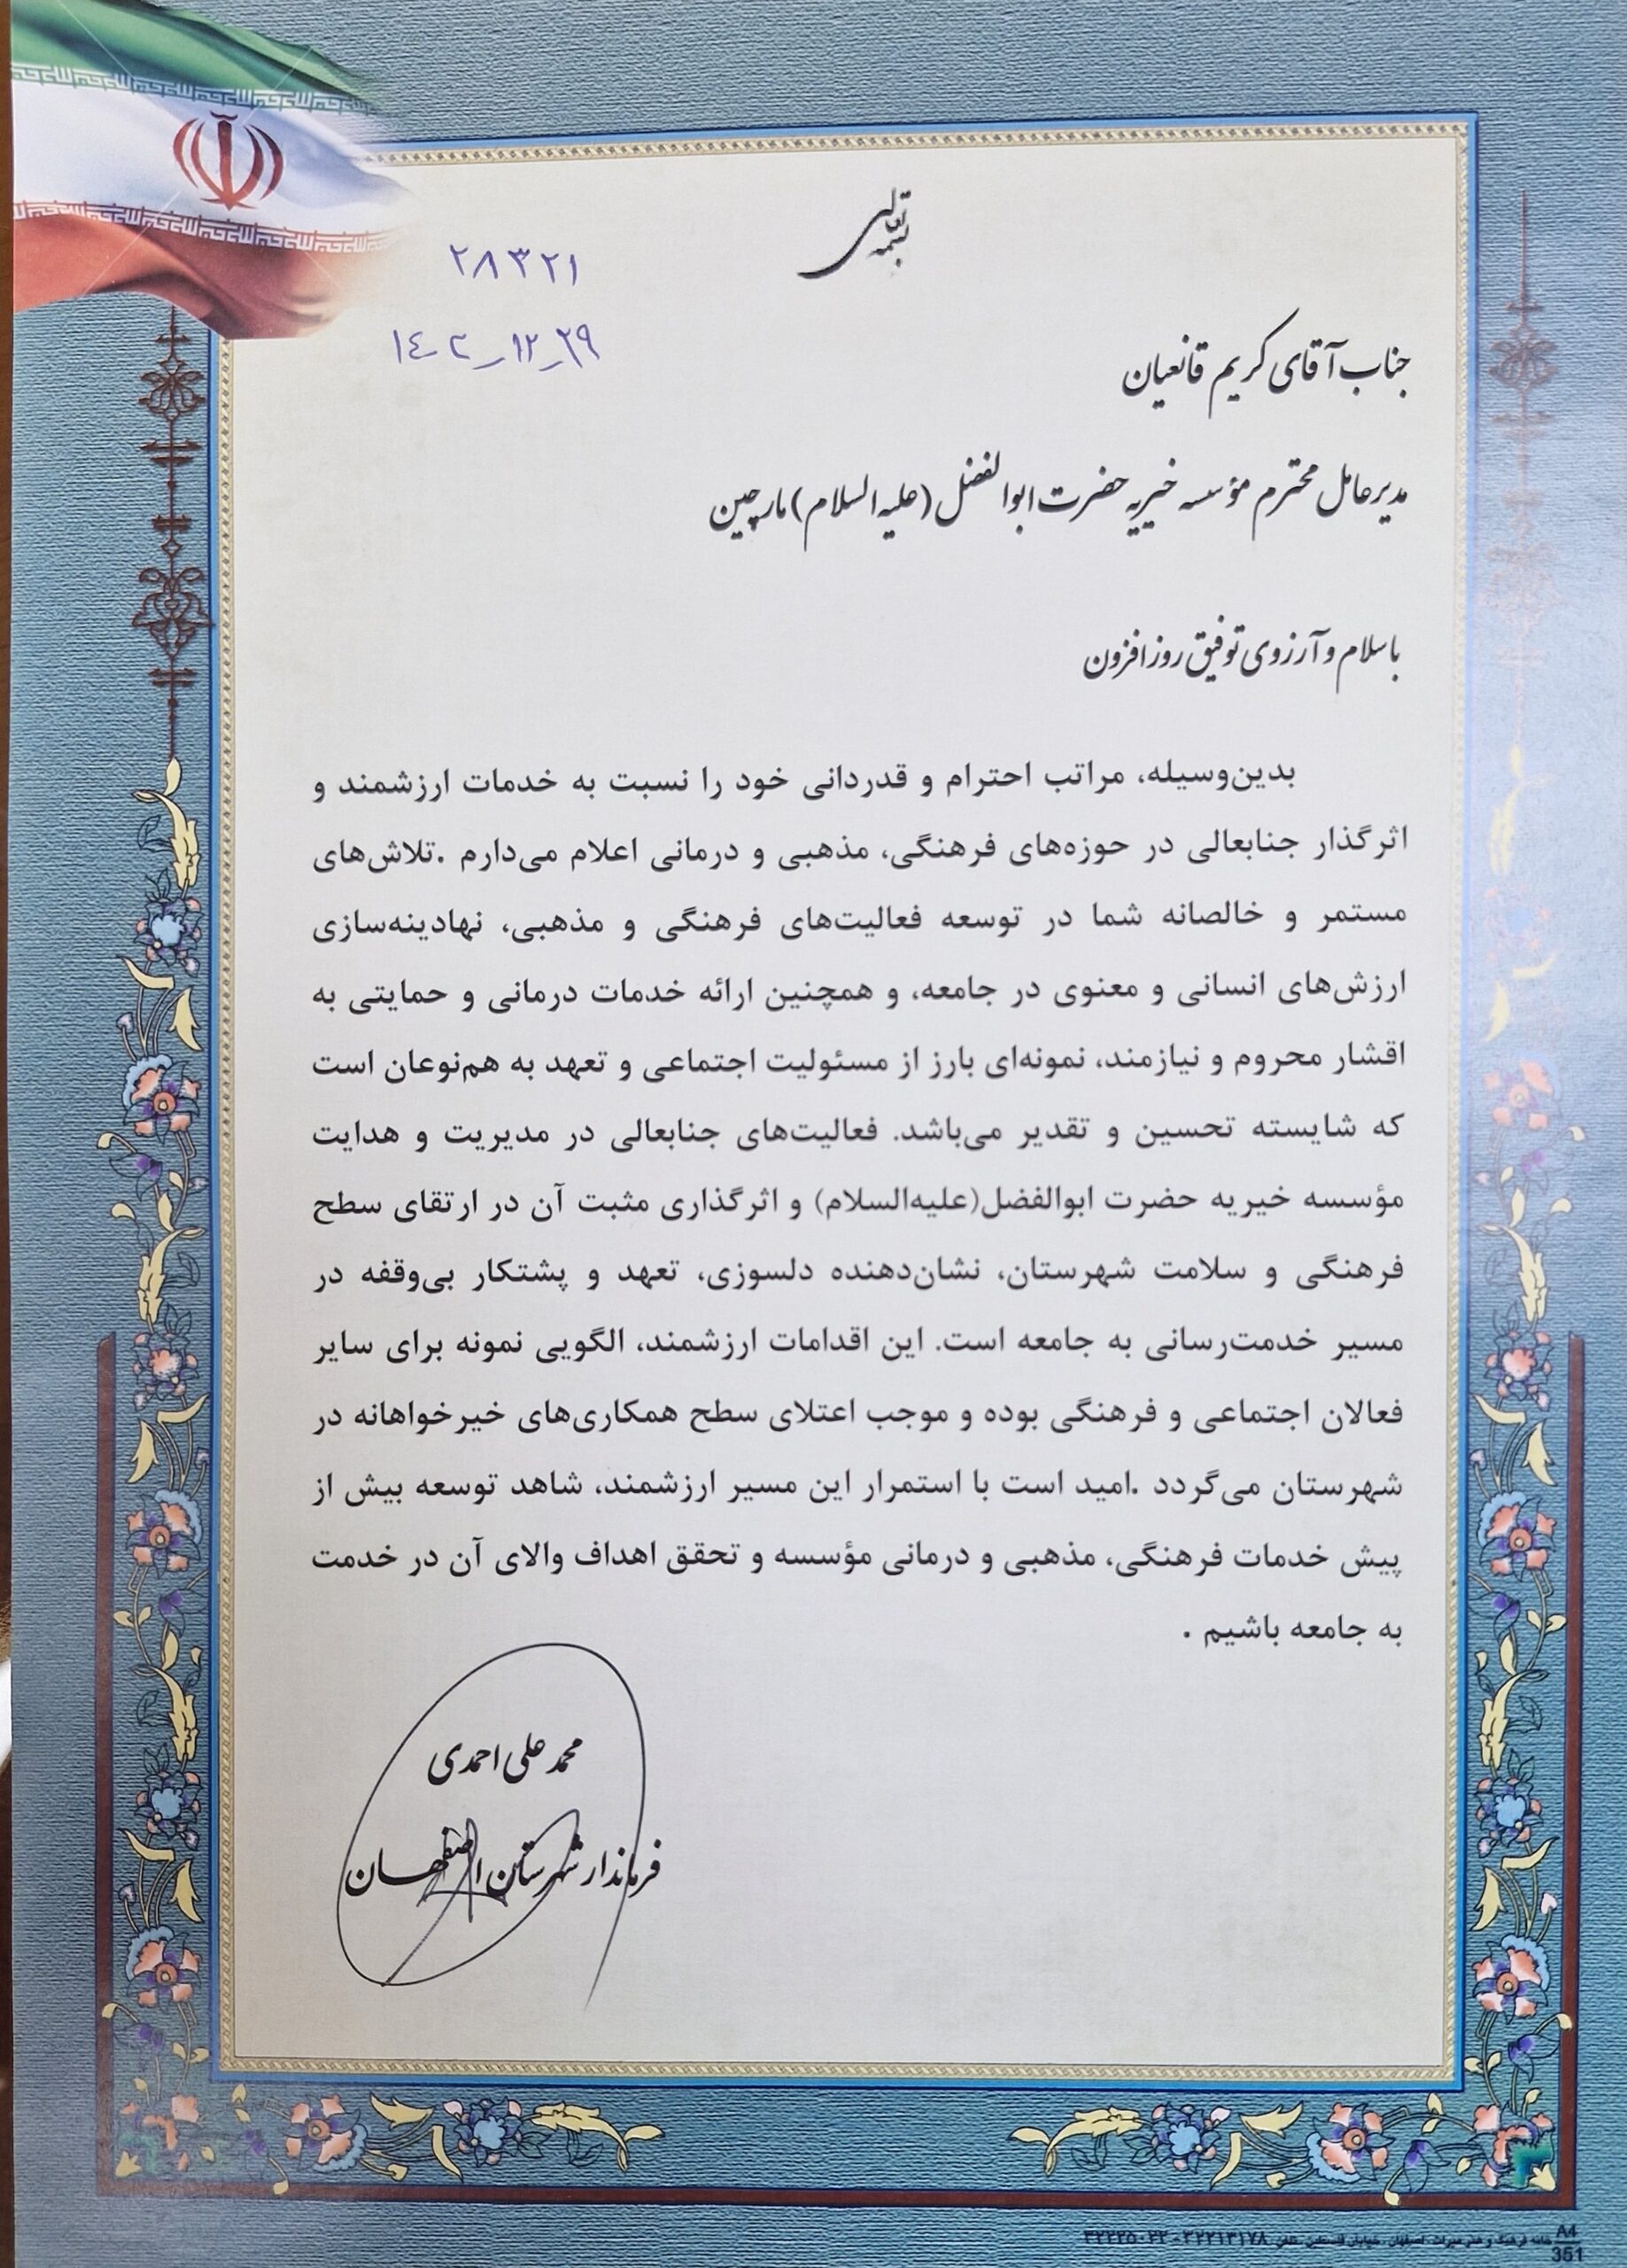 بسمه تعالی
۲۸۳۲۱
۱۴۰۳-۱۲-۲۹
جناب آقای کریم قانعیان
مدیرعامل محترم مؤسسه خیریه حضرت ابوالفضل (علیه السلام) مارچین
با سلام و آرزوی توفیق روزافزون
بدین‌وسیله، مراتب احترام و قدردانی خود را نسبت به خدمات ارزشمند و
اثرگذار جنابعالی در حوزه‌های فرهنگی، مذهبی و درمانی اعلام می‌دارم .تلاش‌های
مستمر و خالصانه شما در توسعه فعالیت‌های فرهنگی و مذهبی، نهادینه‌سازی
ارزش‌های انسانی و معنوی در جامعه، و همچنین ارائه خدمات درمانی و حمایتی به
اقشار محروم و نیازمند، نمونه‌ای بارز از مسئولیت اجتماعی و تعهد به هم‌نوعان است
که شایسته تحسین و تقدیر می‌باشد. فعالیت‌های جنابعالی در مدیریت و هدایت
مؤسسه خیریه حضرت ابوالفضل(علیه‌السلام) و اثرگذاری مثبت آن در ارتقای سطح
فرهنگی و سلامت شهرستان، نشان‌دهنده دلسوزی، تعهد و پشتکار بی‌وقفه در
مسیر خدمت‌رسانی به جامعه است. این اقدامات ارزشمند، الگویی نمونه برای سایر
فعالان اجتماعی و فرهنگی بوده و موجب اعتلای سطح همکاری‌های خیرخواهانه در
شهرستان می‌گردد .امید است با استمرار این مسیر ارزشمند، شاهد توسعه بیش از
پیش خدمات فرهنگی، مذهبی و درمانی مؤسسه و تحقق اهداف والای آن در خدمت
به جامعه باشیم .
محمد علی احمدی
فرماندار شهرستان اصفهان
A4
351